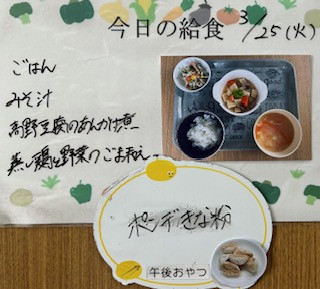 今日の給食 3/25(火)
ごはん
みそ汁
高野豆腐のあんかけ煮
蒸し鶏と野菜のごま和え
ポンデきな粉
午後おやつ